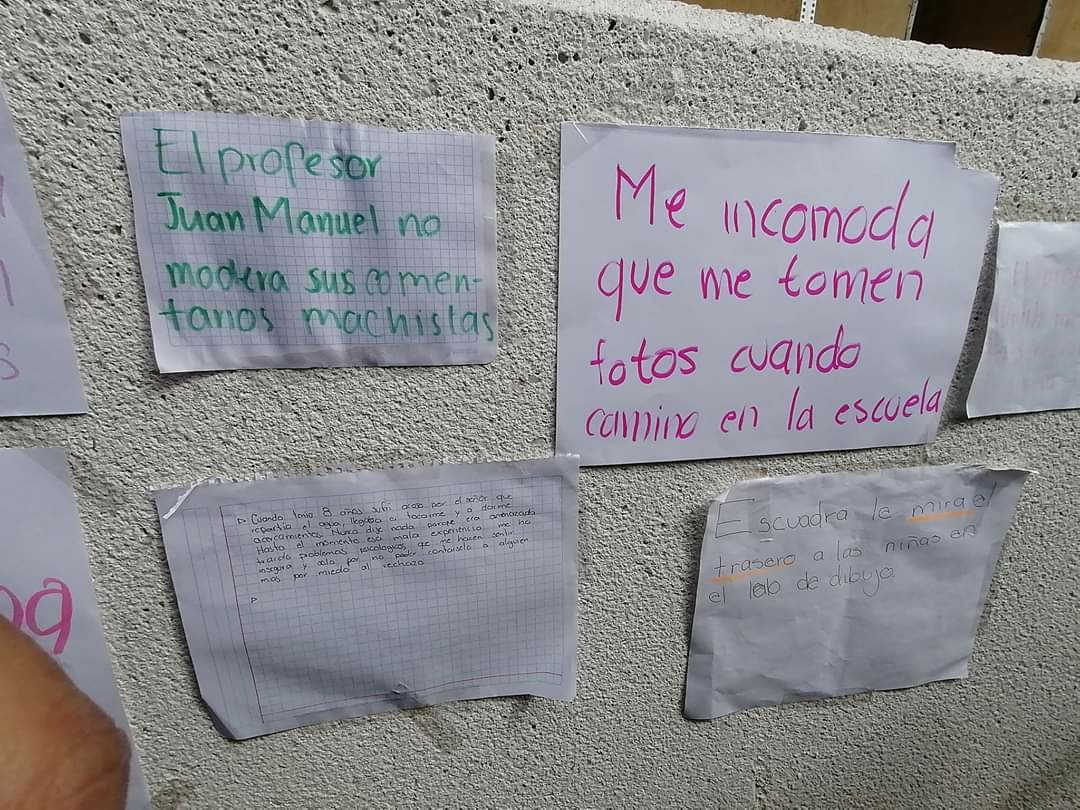 El profesor
Juan Manuel no
modera sus comen-
tarios machistas
Me incomoda
que me tomen
fotos cuando
camino en la escuela
▷ Cuando tenia 8 años sufri acoso por el señor que
repartia el agua, llegaba a tocarme y a darme
acercamientos. Nunca dije nada porque era amenazada
Hasta el momento esa mala experiencia me ha
traido problemas psicologicos que me hacen sentir
insegura y sola por no poder contarselo a alguien
mas por miedo al rechazo
▷
Escuadra le mira el
trasero a las niñas en
el lab de dibujo.